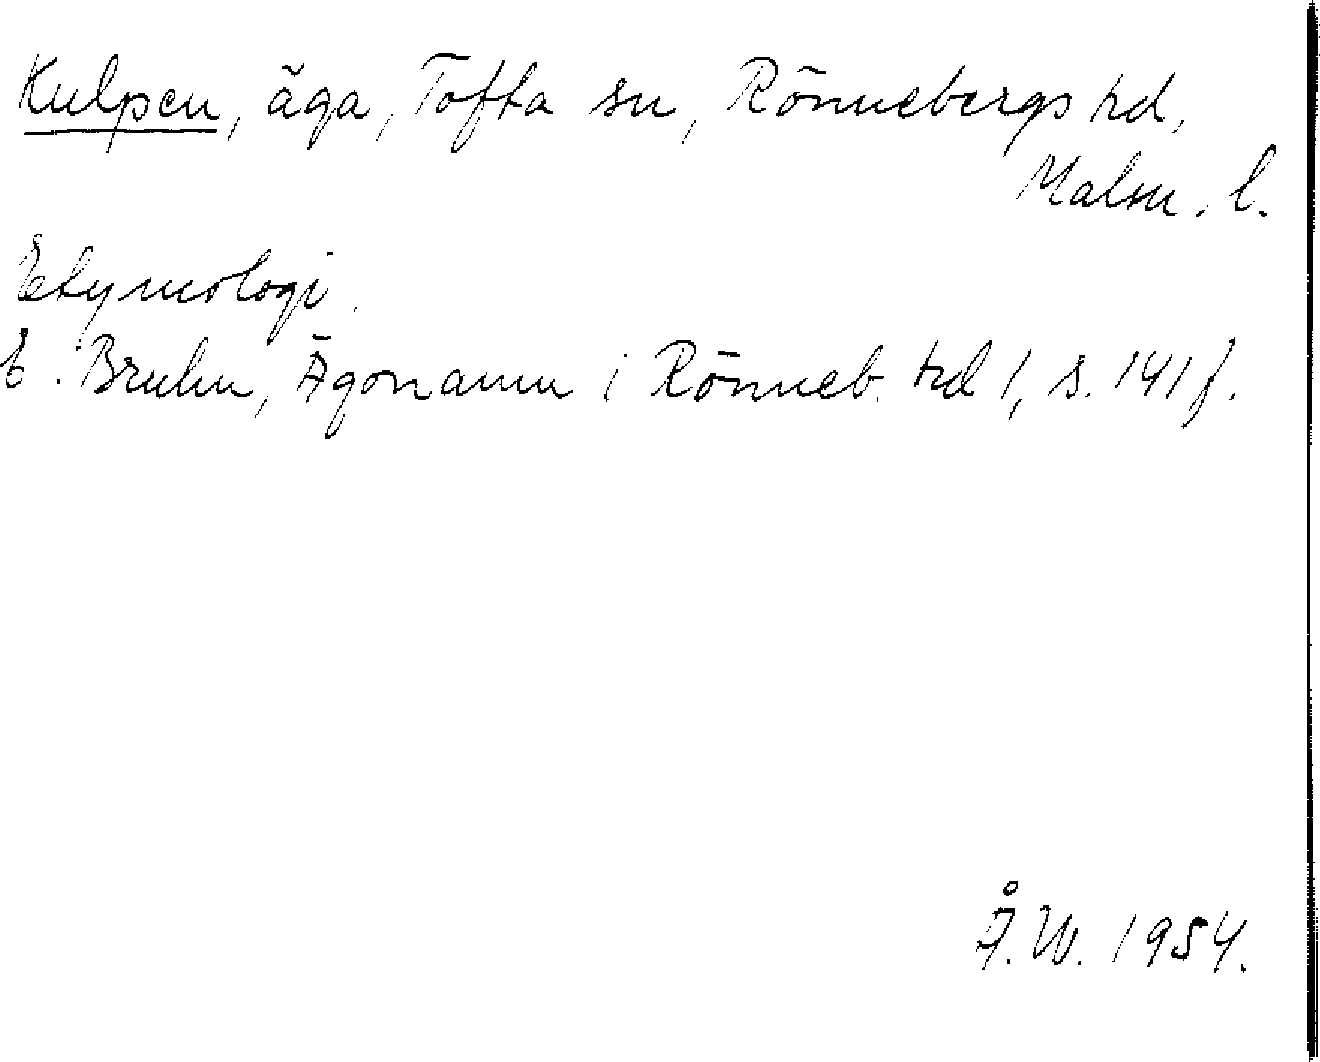 Kulpen, äga, Tofta sn, Rönnebergs hd,
Malm. l.
Etymologi.
E. Bruhn, Ägonamn i Rönneb. hd 1, s. 141 f.
Å.W. 1954.